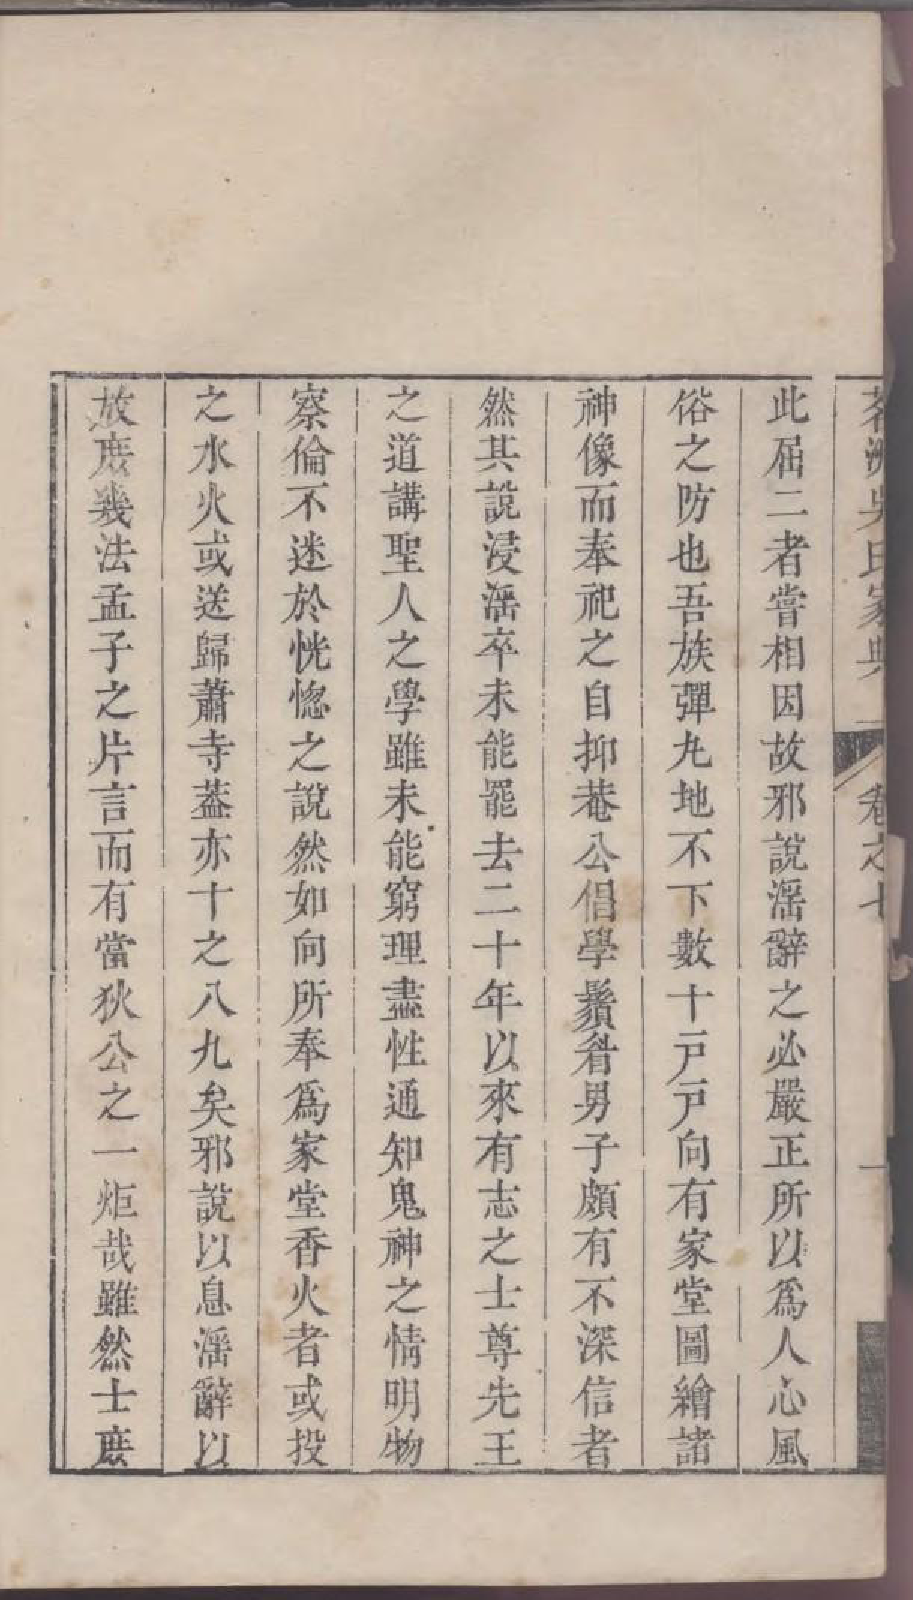 茗洲吳氏家典 卷之七
此屆二者嘗相因故邪說滛辭之必嚴正所以爲人心風
俗之防也吾族彈丸地不下數十戸戸向有家堂圖繪諸
神像而奉祀之自抑菴公倡學鬚眉男子頗有不深信者
然其說浸滛卒未能罷去二十年以來有志之士尊先王
之道講聖人之學雖未能窮理盡性通知鬼神之情明物
察倫不迷於恍惚之說然如向所奉爲家堂香火者或投
之水火或送歸蕭寺葢亦十之八九矣邪說以息滛辭以
放庻幾法孟子之片言而有當狄公之一炬哉雖然士庻